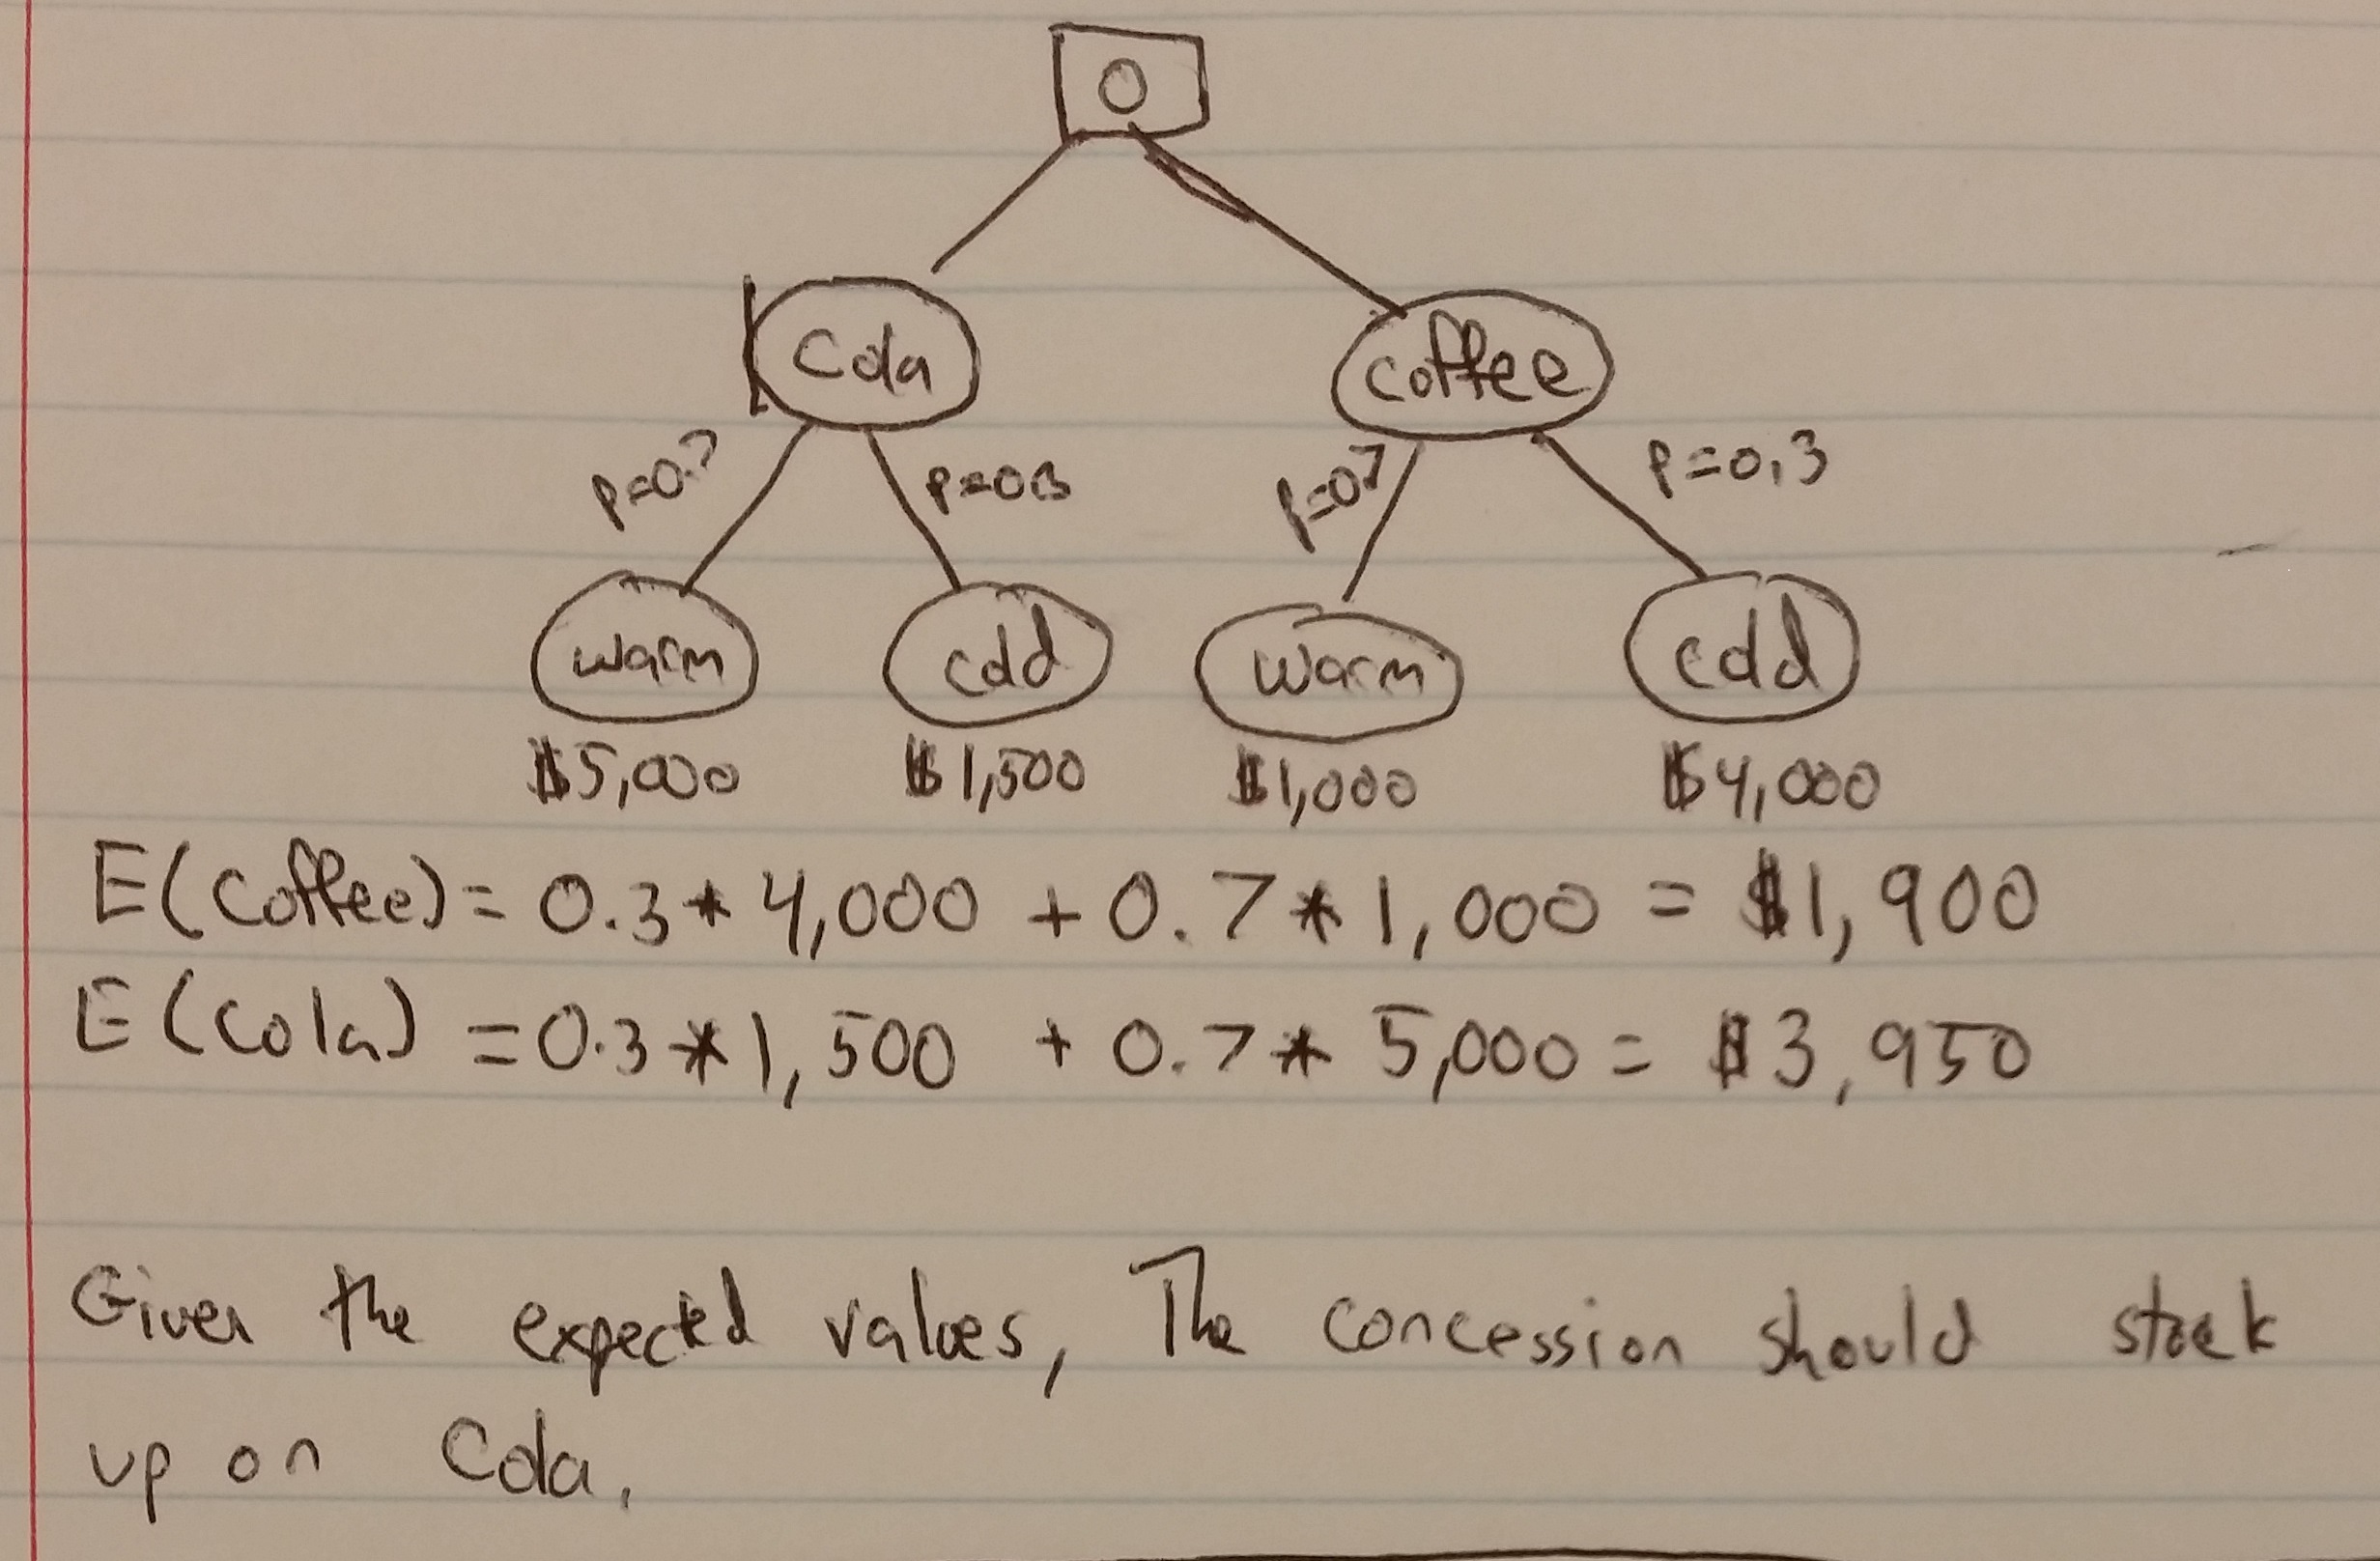 0
Cola Coffee
p=0.7 p=0.3 p=0.7 p=0.3
warm cold warm cold
$5,000 $1,500 $1,000 $4,000
E(Coffee) = 0.3 * 4,000 + 0.7 * 1,000 = $1,900
E(Cola) = 0.3 * 1,500 + 0.7 * 5,000 = $3,950
Given the expected values, The concession should stock
up on Cola.